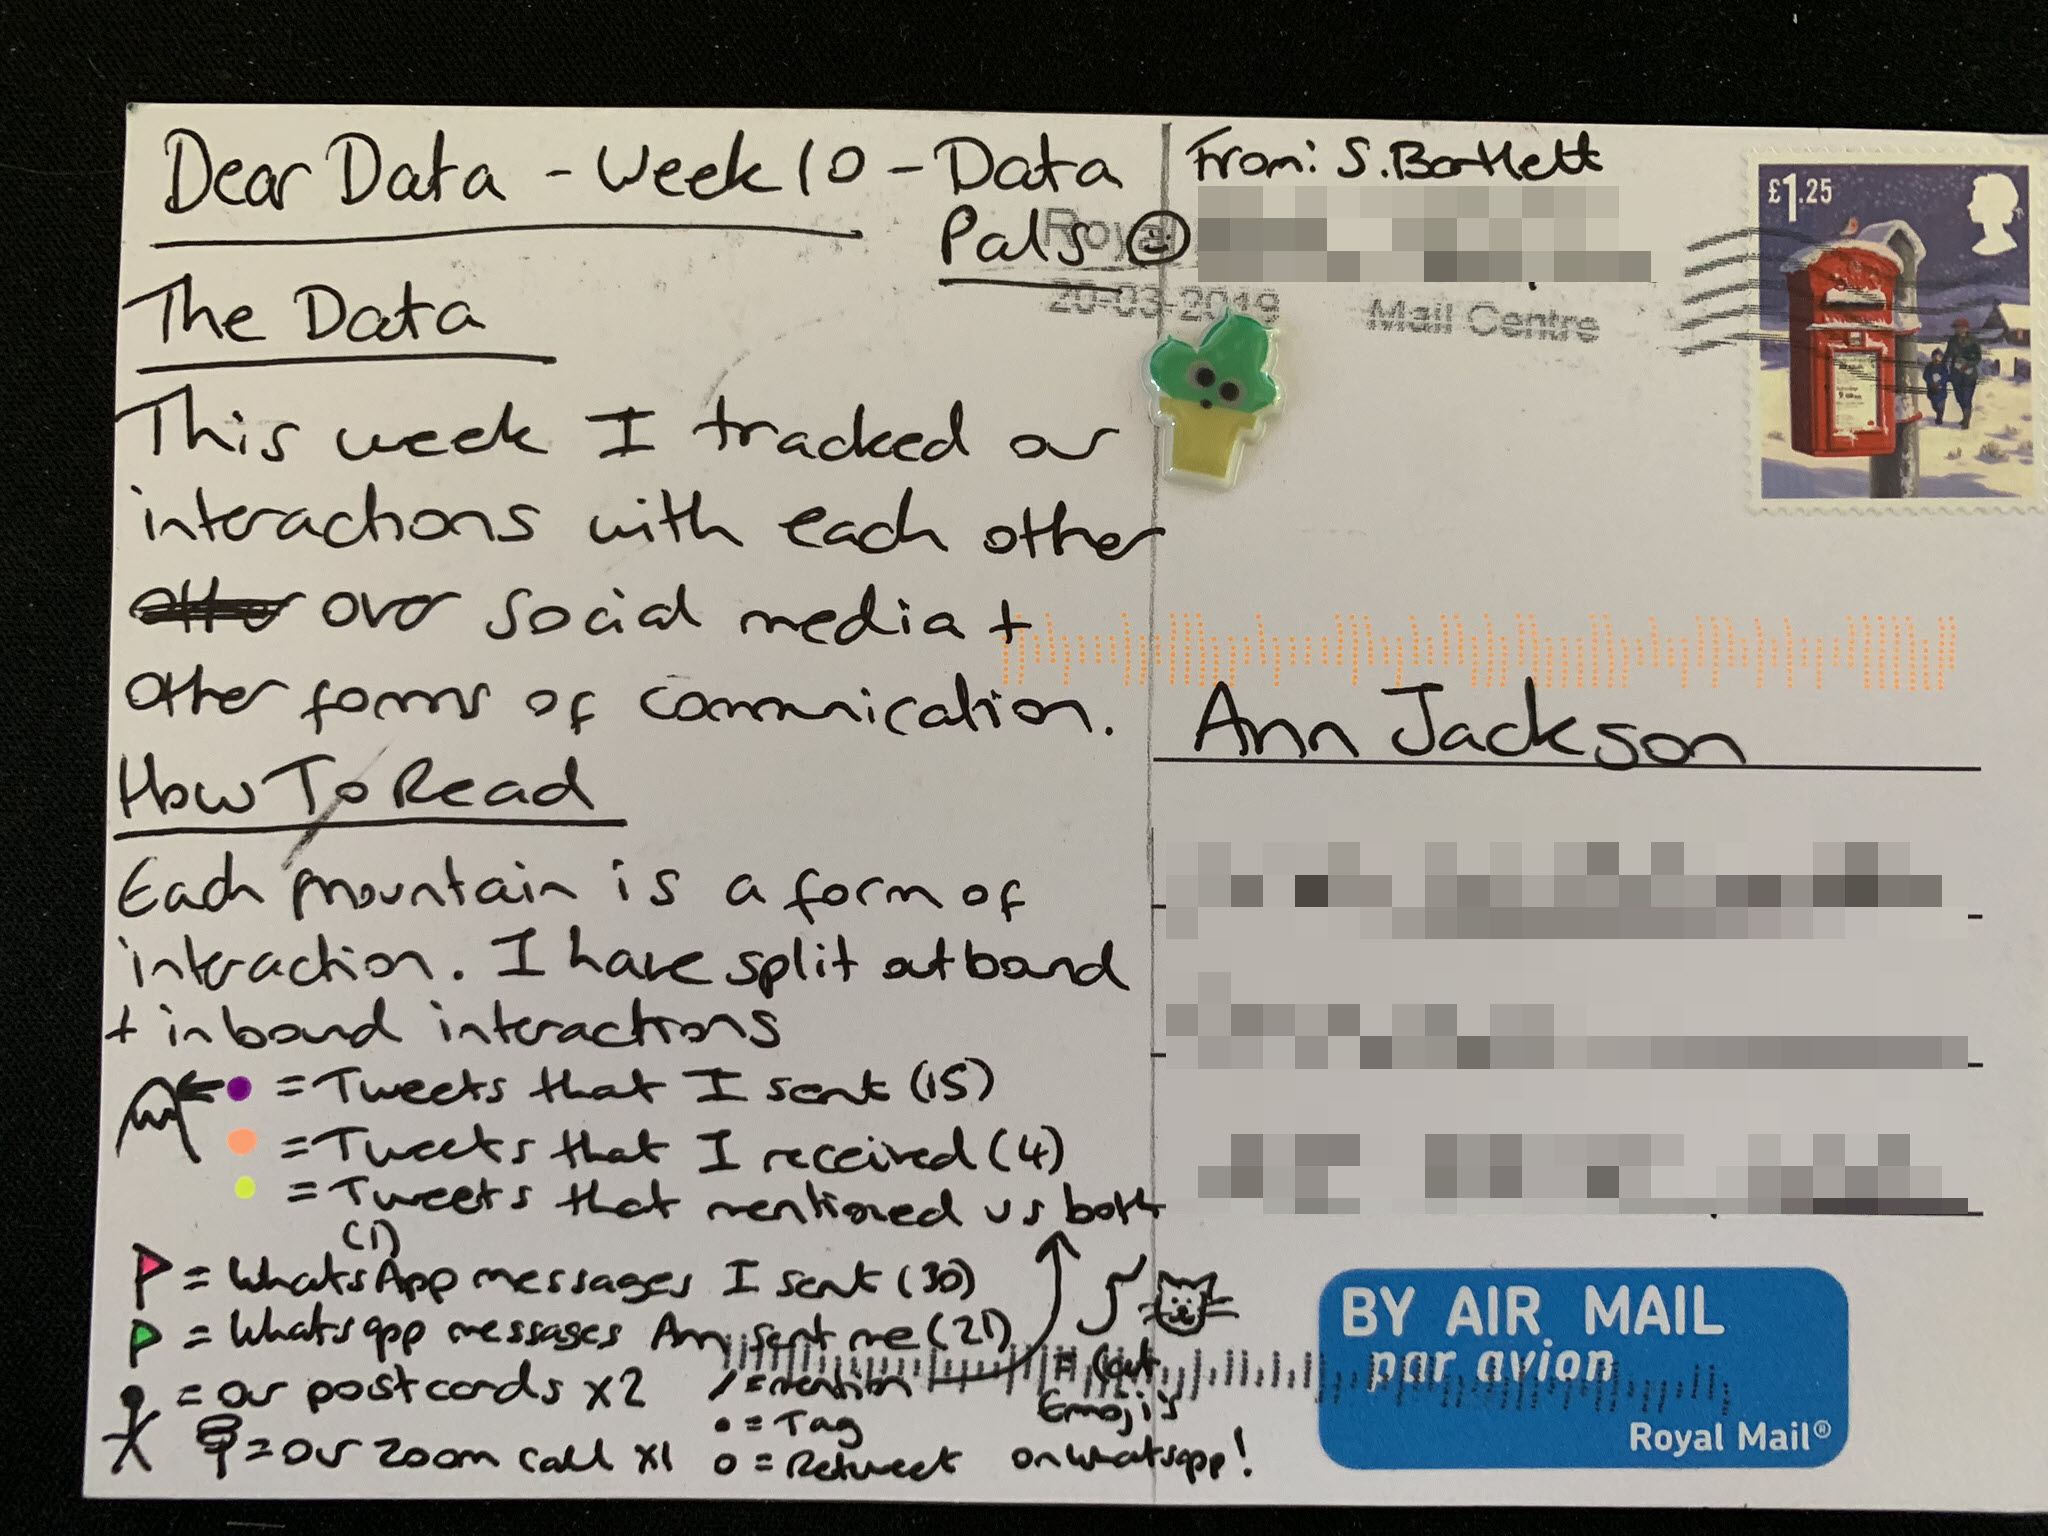 Dear Data - Week 10 - Data
Pals
The Data
This week I tracked our
interactions with each other
over social media +
other forms of communication.
How To Read
Each mountain is a form of
interaction. I have split outbound
+ inbound interactions
= Tweets that I sent (15)
= Tweets that I received (4)
= Tweets that mentioned us both
(1)
= WhatsApp messages I sent (30)
= Whatsapp messages Ann sent me (21)
= our postcards x2
= our zoom call x1
/ = mention
• = Tag
o = Retweet
= Cat
Emoji's
on whatsapp!
From: S. Bartlett
Royal
20-03-2019
Mail Centre
£1.25
Ann Jackson
BY AIR MAIL
par avion
Royal Mail®